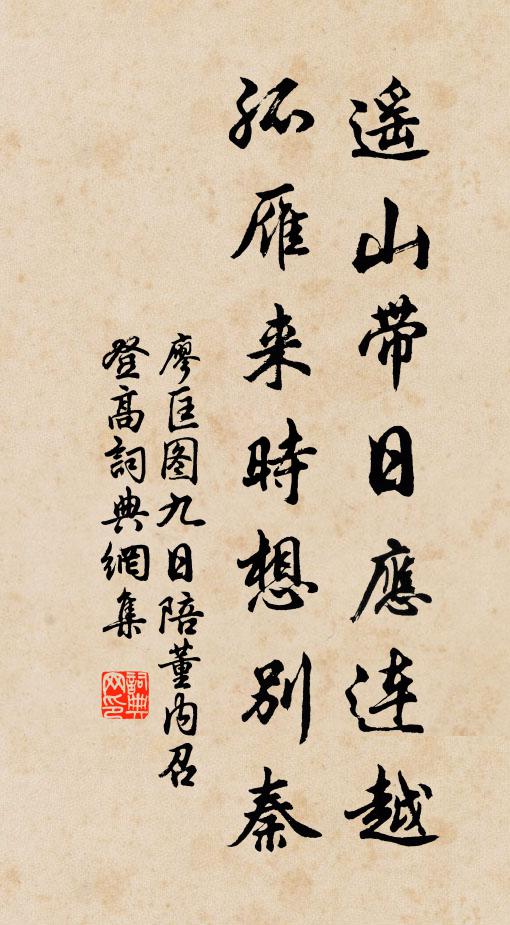 遥山带日應连越
孤雁来時想别秦
廖匡图九日陪董内召
登高詞典網集
詞典
网印